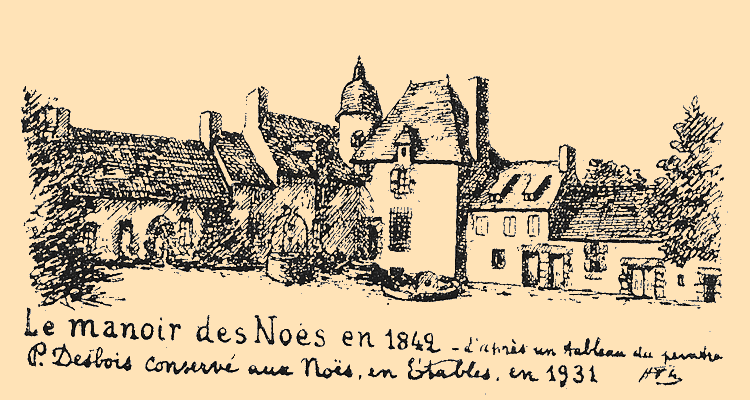 Le manoir des Noës en 1842 - d'après un tableau du peintre
P. Desbois conservé aux Noës, en Etables, en 1931